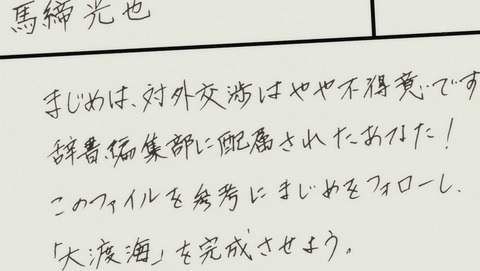 馬締光也
まじめは、対外交渉はやや不得意です
辞書編集部に配属されたあなた！
このファイルを参考にまじめをフォローし、
「大渡海」を完成させよう。